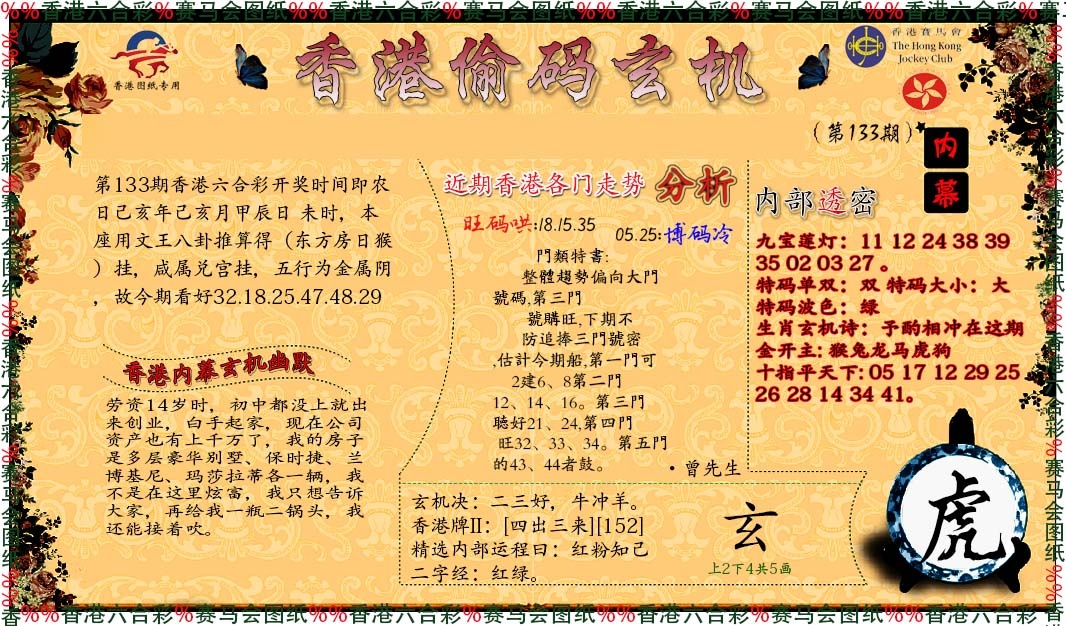 %%香港六合彩%赛马会图纸%%香港六合彩%赛马会图纸%%香港六合彩%赛马会图纸%%香港六合彩%赛马会图纸%%香港六合彩%赛
香港图纸专用
香港偷码玄机
香港賽馬會
The Hong Kong
Jockey Club
(第133期)
内
幕
第133期香港六合彩开奖时间即农
日己亥年己亥月甲辰日 未时，本
座用文王八卦推算得（东方房日猴
）挂，咸属兑宫挂，五行为金属阴
，故今期看好32.18.25.47.48.29
香港内幕玄机幽默
劳资14岁时，初中都没上就出
来创业，白手起家，现在公司
资产也有上千万了，我的房子
是多层豪华别墅、保时捷、兰
博基尼、玛莎拉蒂各一辆，我
不是在这里炫富，我只想告诉
大家，再给我一瓶二锅头，我
还能接着吹。
近期香港各门走势 分析
旺码哄:18.15.35
05.25:博码冷
門類特書:
整體趨勢偏向大門
號碼,第三門
號購旺,下期不
防追捧三門號密
,估計今期船,第一門可
2建6、8第二門
12、14、16。第三門
聽好21、24,第四門
旺32、33、34。第五門
的43、44者鼓。
·曾先生
内部透密
九宝莲灯：11 12 24 38 39
35 02 03 27 。
特码单双：双 特码大小：大
特码波色：绿
生肖玄机诗：予酌相冲在这期
金开主: 猴兔龙马虎狗
十指平天下: 05 17 12 29 25
26 28 14 34 41。
玄机决：二三好，牛冲羊。
香港牌II：[四出三来][152]
精选内部运程曰：红粉知己
二字经：红绿。
玄
上2下4共5画
虎
香%%香港六合彩%赛马会图纸%%香港六合彩%赛马会图纸%%香港六合彩%赛马会图纸%%香港六合彩%赛马会图纸%%香港六合彩%